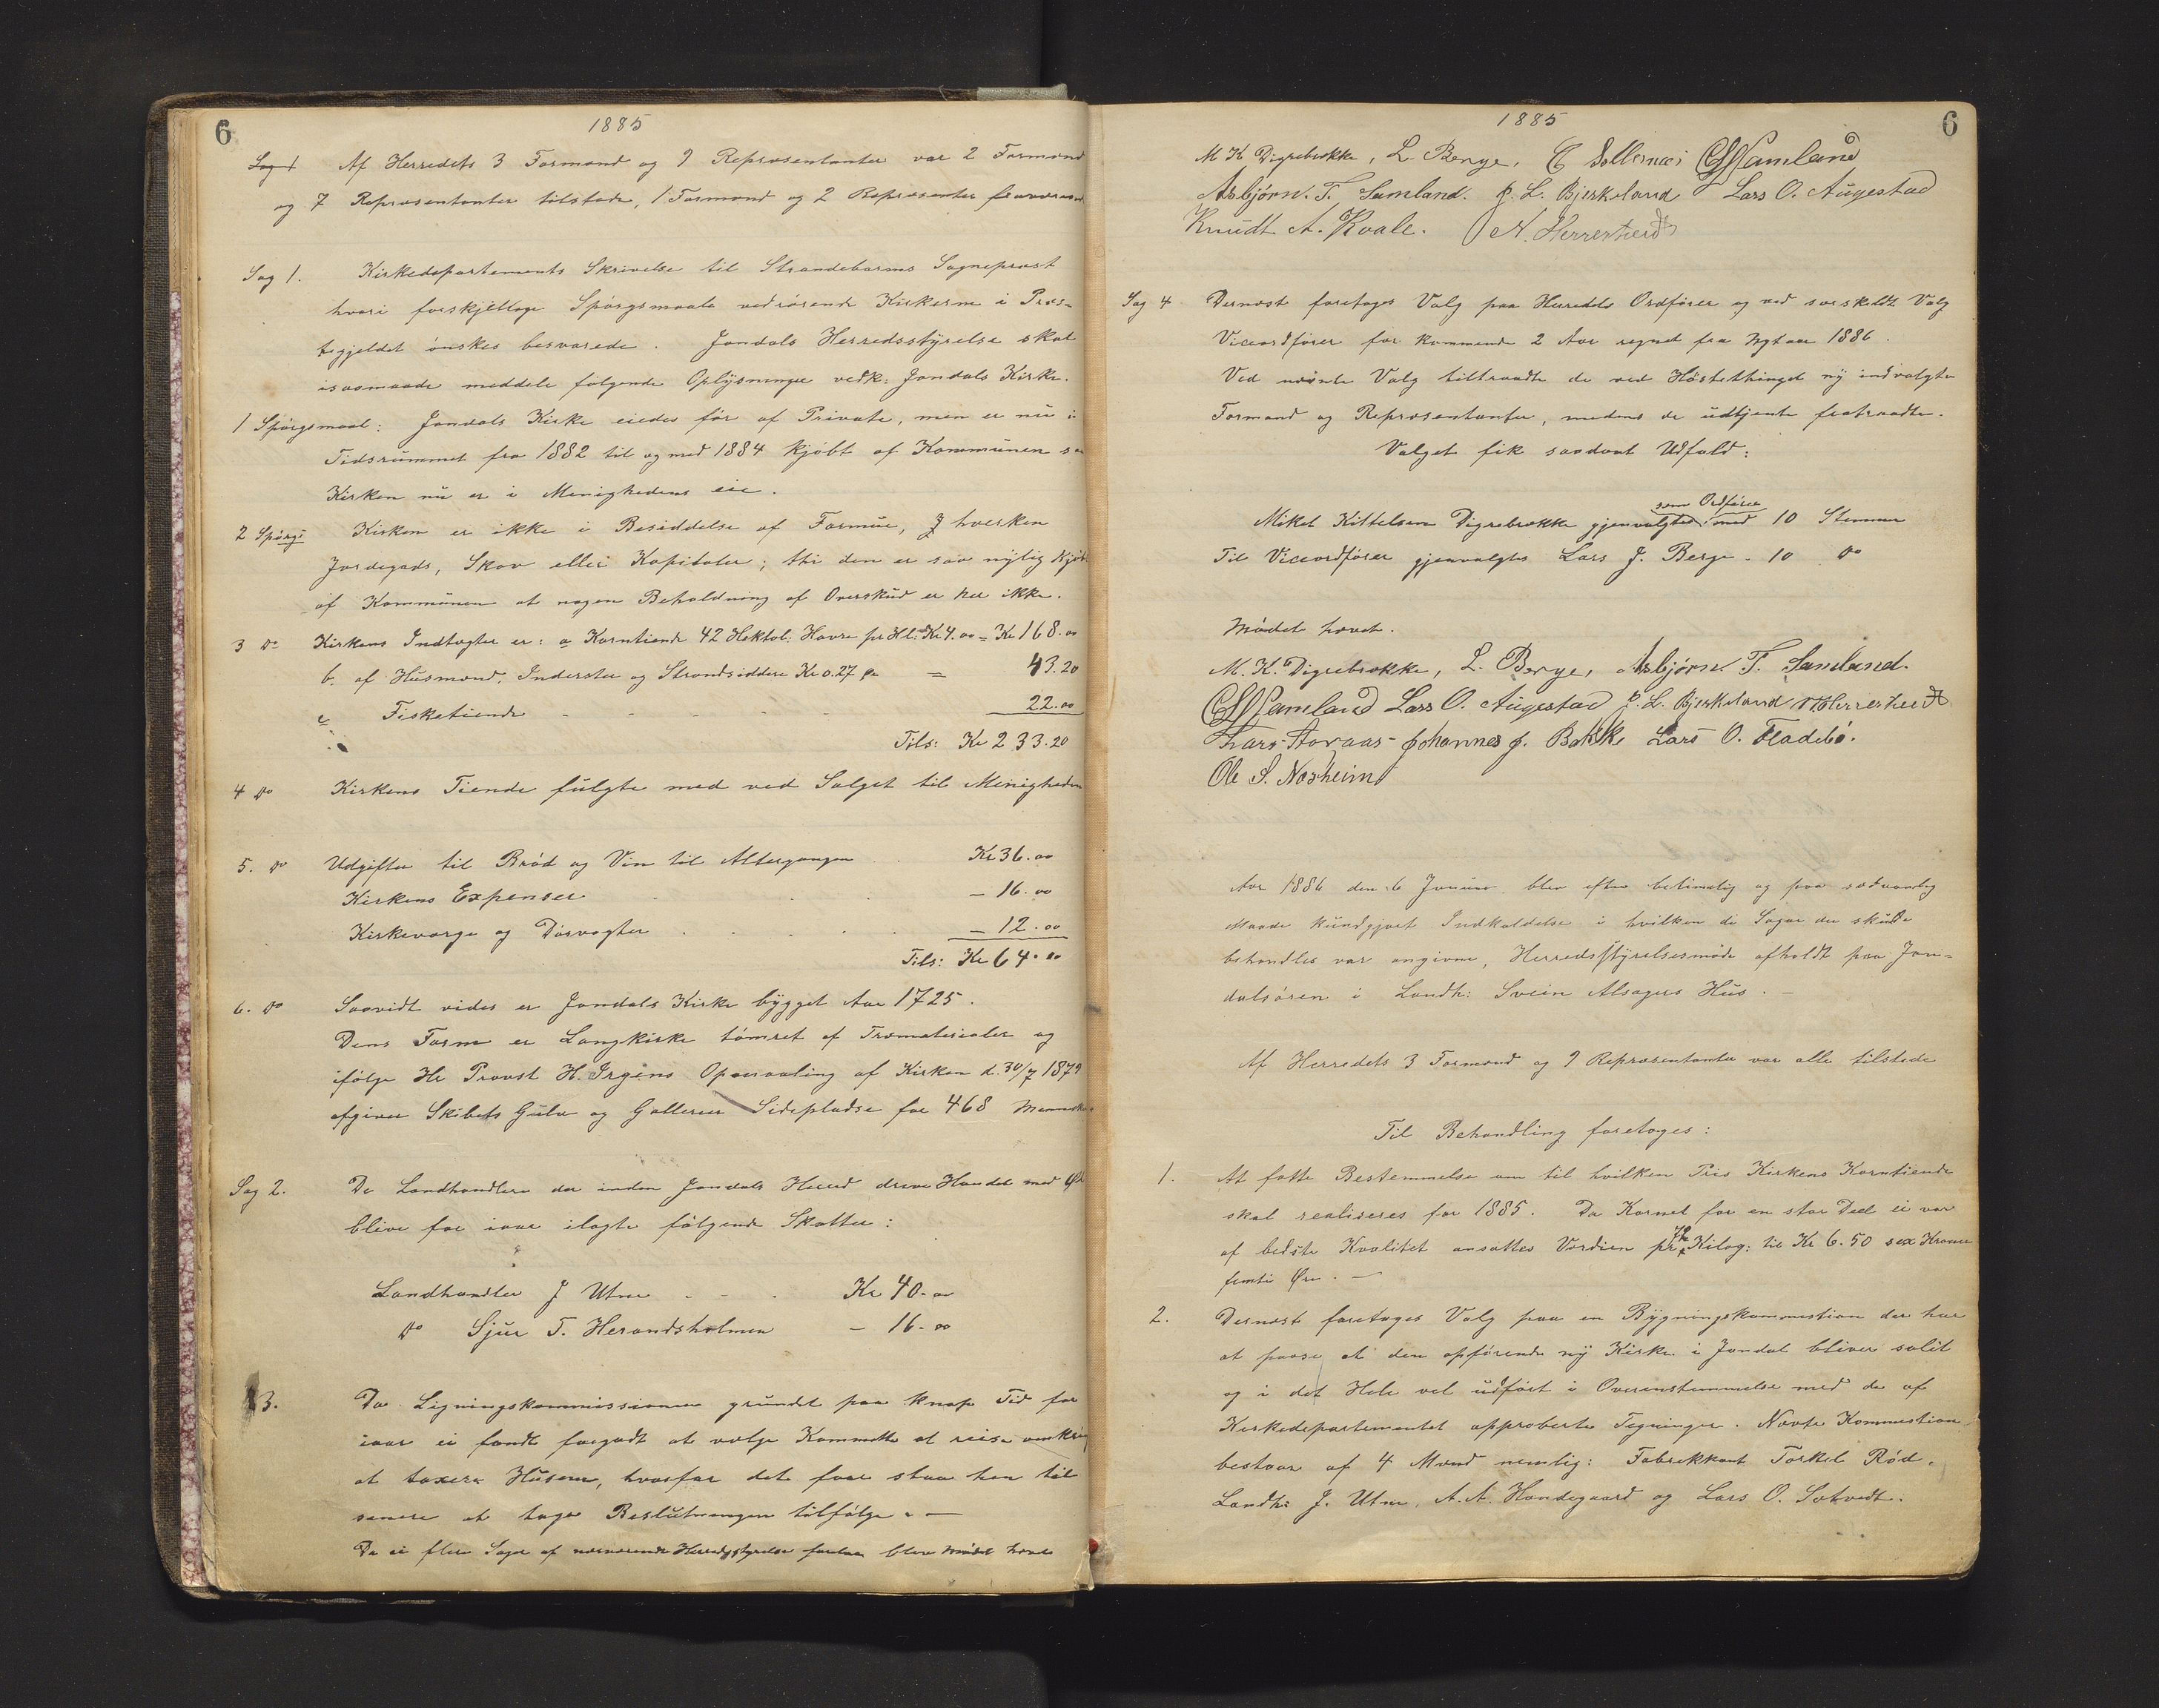 6
1885
Sag 1 Af Herredets 3 Formænd og 9 Repræsentanter var 2 Formænd
og 7 Repræsentanter tilstede, 1 Formand og 2 Repræsenter fraværend
Sag 1. Kirkedepartements Skrivelse til Strandebarms Sogneprest
hvori forskjellige Spørgsmaale vedrørende Kirkerne i Præs=
tegjeldet ønskes besvarede. Jondals Herredsstyrelse skal
isaamaade meddele følgende Oplysninger vedk: Jondals Kirke.
1 Spørgsmaal: Jondals Kirke eiedes før af Private, men er nu i
Tidsrummet fra 1882 til og med 1884 kjøbt af Kommunen saa
Kirken nu er i Menighedens eie.
2 Spørgs Kirken er ikke i Besiddelse af Formue, hverken
Jordegods, Skov eller Kapitaler; thi den er saa nylig kjøbt
af Kommunen at nogen Beholdning af Overskud er her ikke.
3 do Kirkens Indtægter er: a Korntiende 42 Hektol: Havre pr Hl. Kr 4.00 = Kr 168.00
b. af Husmænd, Inderster og Strandsiddere Kr 0.27 = 43.20
c Fisketiende 22.00
Tils: Kr 233.20
4 do Kirkens Tiende fulgte med ved Salget til Menigheden
5. do Udgifter til Brød og Vin til Altergangen Kr 36.00
Kirkens Expenser - 16.00
Kirkeværge og Dørvogter - 12.00
Tils: Kr 64.00
6. do Saavidt vides er Jondals Kirke bygget Aar 1725.
Dens Form er Langkirke tømret af Træmaterialer og
ifølge Hr Provst H. Irgens Opmaaling af Kirken d. 30/7 1879
afgiver Skibets Gulv og Gallerier Sidepladse for 468 Mennesker
Sag 2. De Landhandlere der inden Jondals Herred drive Handel med Øl
blive for iaar ilagte følgende Skatter:
Landhandler J Utne Kr 40.00
do Sjur T. Herandsholmen - 16.00
3. Da Ligningskommissionen grundet paa knap Tid for
iaar ei fandt forgodt at vælge Kommitte at reise omkring
at taxere Husene, hvorfor det faar staa hen til
senere at tage Beslutningen tilfølge. -
Da ei flere Sager af nærværende Herredsstyrelse forelaa blev Mødet hævet
6
1885
M K Digrebrøkke, L. Berge, Samland
Asbjørn. T. Samland. J. L. Bjerkeland Lars O. Augestad
Knudt A. Kvale. N. Herresthedt
Sag 4 Dernæst foretoges Valg paa Herredets Ordfører og ved særskildt Valg
Viceordfører for kommende 2 Aar regnet fra Nytaar 1886.
Ved nævnte Valg tiltraadte de ved Høstetthinget ny indvalgte
Formænd og Repræsentanter, medens de udtjente fratraadte.
Valget fik saadant Udfald:
som Ordfører
Mikel Kittelsen Digrebrøkke gjenvalgtes med 10 Stemmer
Til Viceordfører gjenvalgtes Lars J. Berge - 10 do
Mødet hævet.
M. K. Digrebrøkke, L. Berge, Asbjørn T. Samland.
Samland Lars O. Augestad J. L. Bjerkeland N Herresthedt
Lars Aavaas Johannes J. Bakke Lars O. Fladebø.
Ole S. Næsheim
Aar 1886 den 6 Januar blev efter betimelig og paa sædvanlig
Maade kundgjort Indkaldelse i hvilken de Sager der skulde
behandles var angivne, Herredsstyrelsesmøde afholdt paa Jon=
dalsøren i Landh: Svein Alsagers Hus. -
Af Herredets 3 Formænd og 9 Repræsentanter var alle tilstede
Til Behandling foretoges:
1. At fatte Bestemmelse om til hvilken Pris Kirkens Korntiende
skal realiseres for 1885. Da Kornet for en stor Deel ei var
af bedste Kvalitet ansattes Værdien pr Kilog: til Kr 6.50 sex Kroner
femti Øre. -
2. Dernæst foretoges Valg paa en Bygningskommistion der har
at paase at den opførende ny Kirke i Jondal bliver solit
og i det Hele vel udført i Overenstemmelse med de af
Kirkedepartementet approberte Tegninger. Nævte Kommistion
bestaar af 4 Mænd nemlig: Fabrikkant Torkel Rød,
Landh: J. Utne, A. A. Handegaard og Lars O. Sotvedt.